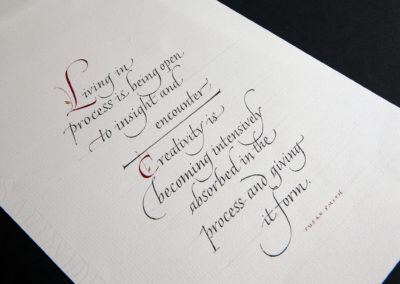 Living in
process is being open
to insight and
encounter,
Creativity is
becoming intensively
absorbed in the
process and giving
it form.